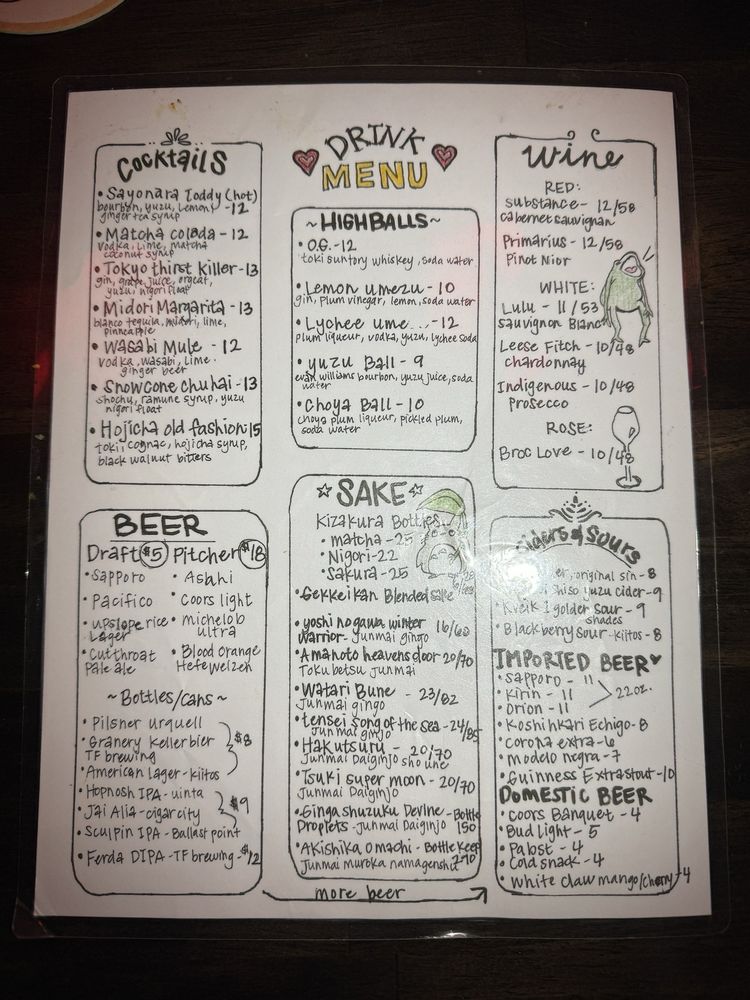 DRINK
MENU
Cocktails
• Sayonara Toddy (hot)
bourbon, yuzu, Lemon, -12
ginger tea syrup
• Matcha colada - 12
vodka, lime, matcha
coconut syrup
• Tokyo thirst killer - 13
gin, grape juice, orgeat,
yuzu, nigori float
• Midori Margarita - 13
blanco tequila, midori, lime,
pinneapple
• Wasabi Mule - 12
vodka, wasabi, lime,
ginger beer
• Snowcone chuhai - 13
shochu, ramune syrup, yuzu
nigori float
• Hojicha old fashion - 15
toki, cognac, hojicha syrup,
black walnut bitters
~HIGHBALLS~
• O.G. - 12
toki suntory whiskey, soda water
• Lemon umezu - 10
gin, plum vinegar, lemon, soda water
• Lychee ume... - 12
plum liqueur, vodka, yuzu, lychee soda
• yuzu Ball - 9
evan williams bourbon, yuzu juice, soda
water
• Choya Ball - 10
choya plum liqueur, pickled plum,
soda water
Wine
RED:
substance - 12/58
cabernet sauvignan
Primarius - 12/58
Pinot Nior
WHITE:
Lulu - 11/53
sauvignon Blanc
Leese Fitch - 10/48
chardonnay
Indigenous - 10/48
prosecco
ROSE:
Broc Love - 10/48
BEER
Draft $5 Pitcher $18
• Sapporo • Asahi
• Pacifico • Coors light
• upslope rice • michelob
Lager ultra
• Cutthroat • Blood orange
Pale ale Hefeweizen
~Bottles/cans~
• Pilsner urquell
• Granery Kellerbier $8
TF brewing
• American Lager - kiitos
• Hopnosh IPA - uinta
• Jai Alia - cigar city $9
• Sculpin IPA - Ballast point
• Ferda DIPA - TF brewing - $12
☆ SAKE ☆
Kizakura Bottles
• matcha - 25
• Nigori - 22
• Sakura - 25
• Gekkeikan Blended sake
• yoshinogawa winter 16/60
warrior - Junmai gingo
• Amanoto heavens door 20/70
Tokubetsu junmai
• Watari Bune - 23/82
Junmai gingo
• tensei song of the sea - 24/85
Junmai ginjo
• Hakutsuru - 20/70
Junmai Daiginjo sho une
• Tsuki super moon - 20/70
Junmai Daiginjo
• Ginga shuzuku Devine - Bottle
Droplets - Junmai Daiginjo 150
• Akishika Omachi - Bottle Keep
Junmai muroka namagenshu 290
more beer
Ciders & Sours
original sin - 8
shiso yuzu cider - 9
• Kveik 1 golder sour - 9
shades
• Blackberry sour - kiitos - 8
IMPORTED BEER
• Sapporo - 11
• Kirin - 11 22oz.
• Orion - 11
• Koshihkari Echigo - 8
• Corona extra - 6
• modelo negra - 7
• Guinness Extra stout - 10
DOMESTIC BEER
• Coors Banquet - 4
• Bud light - 5
• Pabst - 4
• Cold snack - 4
• White claw mango/cherry - 4